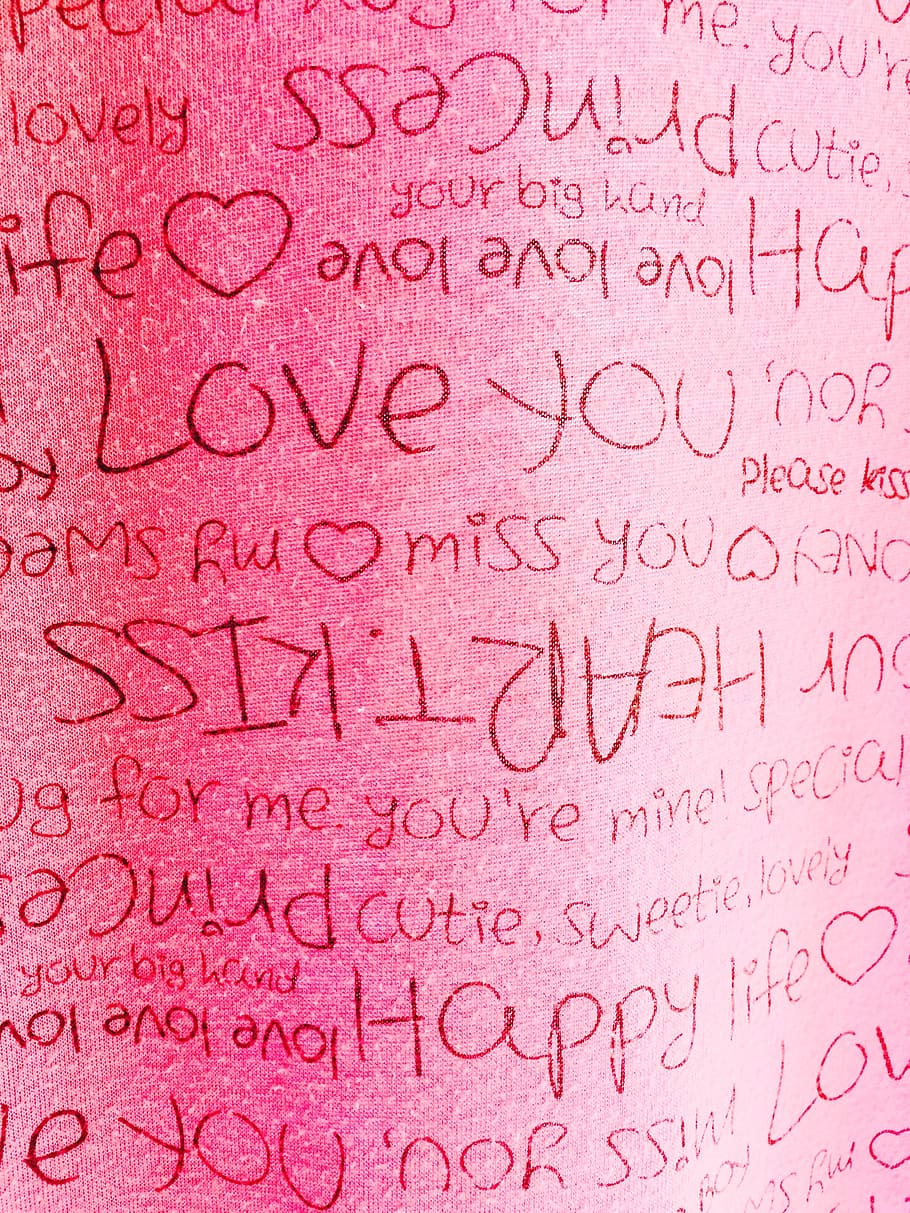 special hug for me. you're
lovely princess cutie,
your big hand
life love love love Hap
Love you you,
Please kiss
my miss you
HEART.KISS
ug for me you're mine! special
princess cutie, sweetie, lovely
your big hand
love love love Happy life
Love
ve you you, miss
my